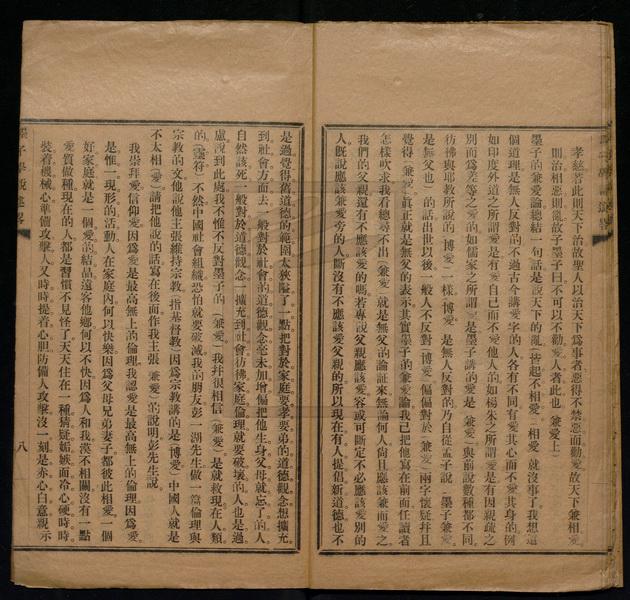 孝慈若此則天下治故聖人以治天下爲事者惡得不禁惡而勸愛故天下兼相愛
則治相惡則亂故子墨子曰不可以不勸愛人者此也(兼愛上)
墨子的兼愛論總結一句話是說天下的亂(皆起不相愛)相愛就沒事了我想這
個道理是無人反對的不過古今講愛字的人各有不同有愛其心而不愛其身的例
如印度外道之所謂愛是有愛自己而不愛他人的如楊朱之所謂愛是有因親疏之
別而爲差等之愛的如儒家之所謂(三是墨子講的愛是(兼愛)與前說數種都不同
彷彿與耶敎所說的(博愛)一樣(博愛)是無人反對的乃自從孟子說(墨子兼愛
是無父也)的話出世以後一般人不反對(博愛)偏偏對於(兼愛)兩字懷疑幷且
覺得(兼愛)眞正就是無父的表示其實墨子的兼愛論我已把他寫在前面任讀者
怎樣吹求我看總尋不出(兼愛)就是無父的論証來無論何人尙且應該兼而愛之
我們的父親還有不應該愛的嗎若專說父親應該愛容或可斷定不必應該愛別的
人既說應該兼愛旁的人斷沒有不應該愛父親的所以現在有人提倡新道德也不
是過覺得舊道德的範圍太狹隘了一點把對於家庭要孝要弟的道德觀念想擴充
到社會方面去一般對於社會的道德觀念毫未加增偏把他生身父母就忘了的人
自然該死一般對於道德觀念一擴充到社會彷彿家庭倫理就要破壞的人也是過
慮說到此處我不惟不反對墨子的(兼愛)我幷很相信(兼愛)是就救現在人類
的(靈符)不然中國社會組織恐怕就要破滅我的朋友彭一湖先生做一篇倫理與
宗敎的文他說他主張維持宗敎(指基督敎)因爲宗敎講的是(博愛)中國人就是
不太相(愛)請把他說的話寫在後面作我主張(兼愛)的說明彭先生說
我崇拜愛信仰愛因爲愛是最高無上的倫理我認愛是最高無上的倫理因爲愛
是惟一現形的活動人在家庭內何以快樂因爲父母兄弟妻子都彼此相愛一個
好家庭就是一個愛的結晶遠客他鄉何以不快因爲人和我漠不相關沒有一點
愛質做種現在的人都是習慣不見怪了天天住在一種猜疑媢嫉而冷心硬時時
裝着機械心準備攻擊人又時時提着心胆防備人攻擊沒一刻是赤心白意親示
墨子學說述畧
八